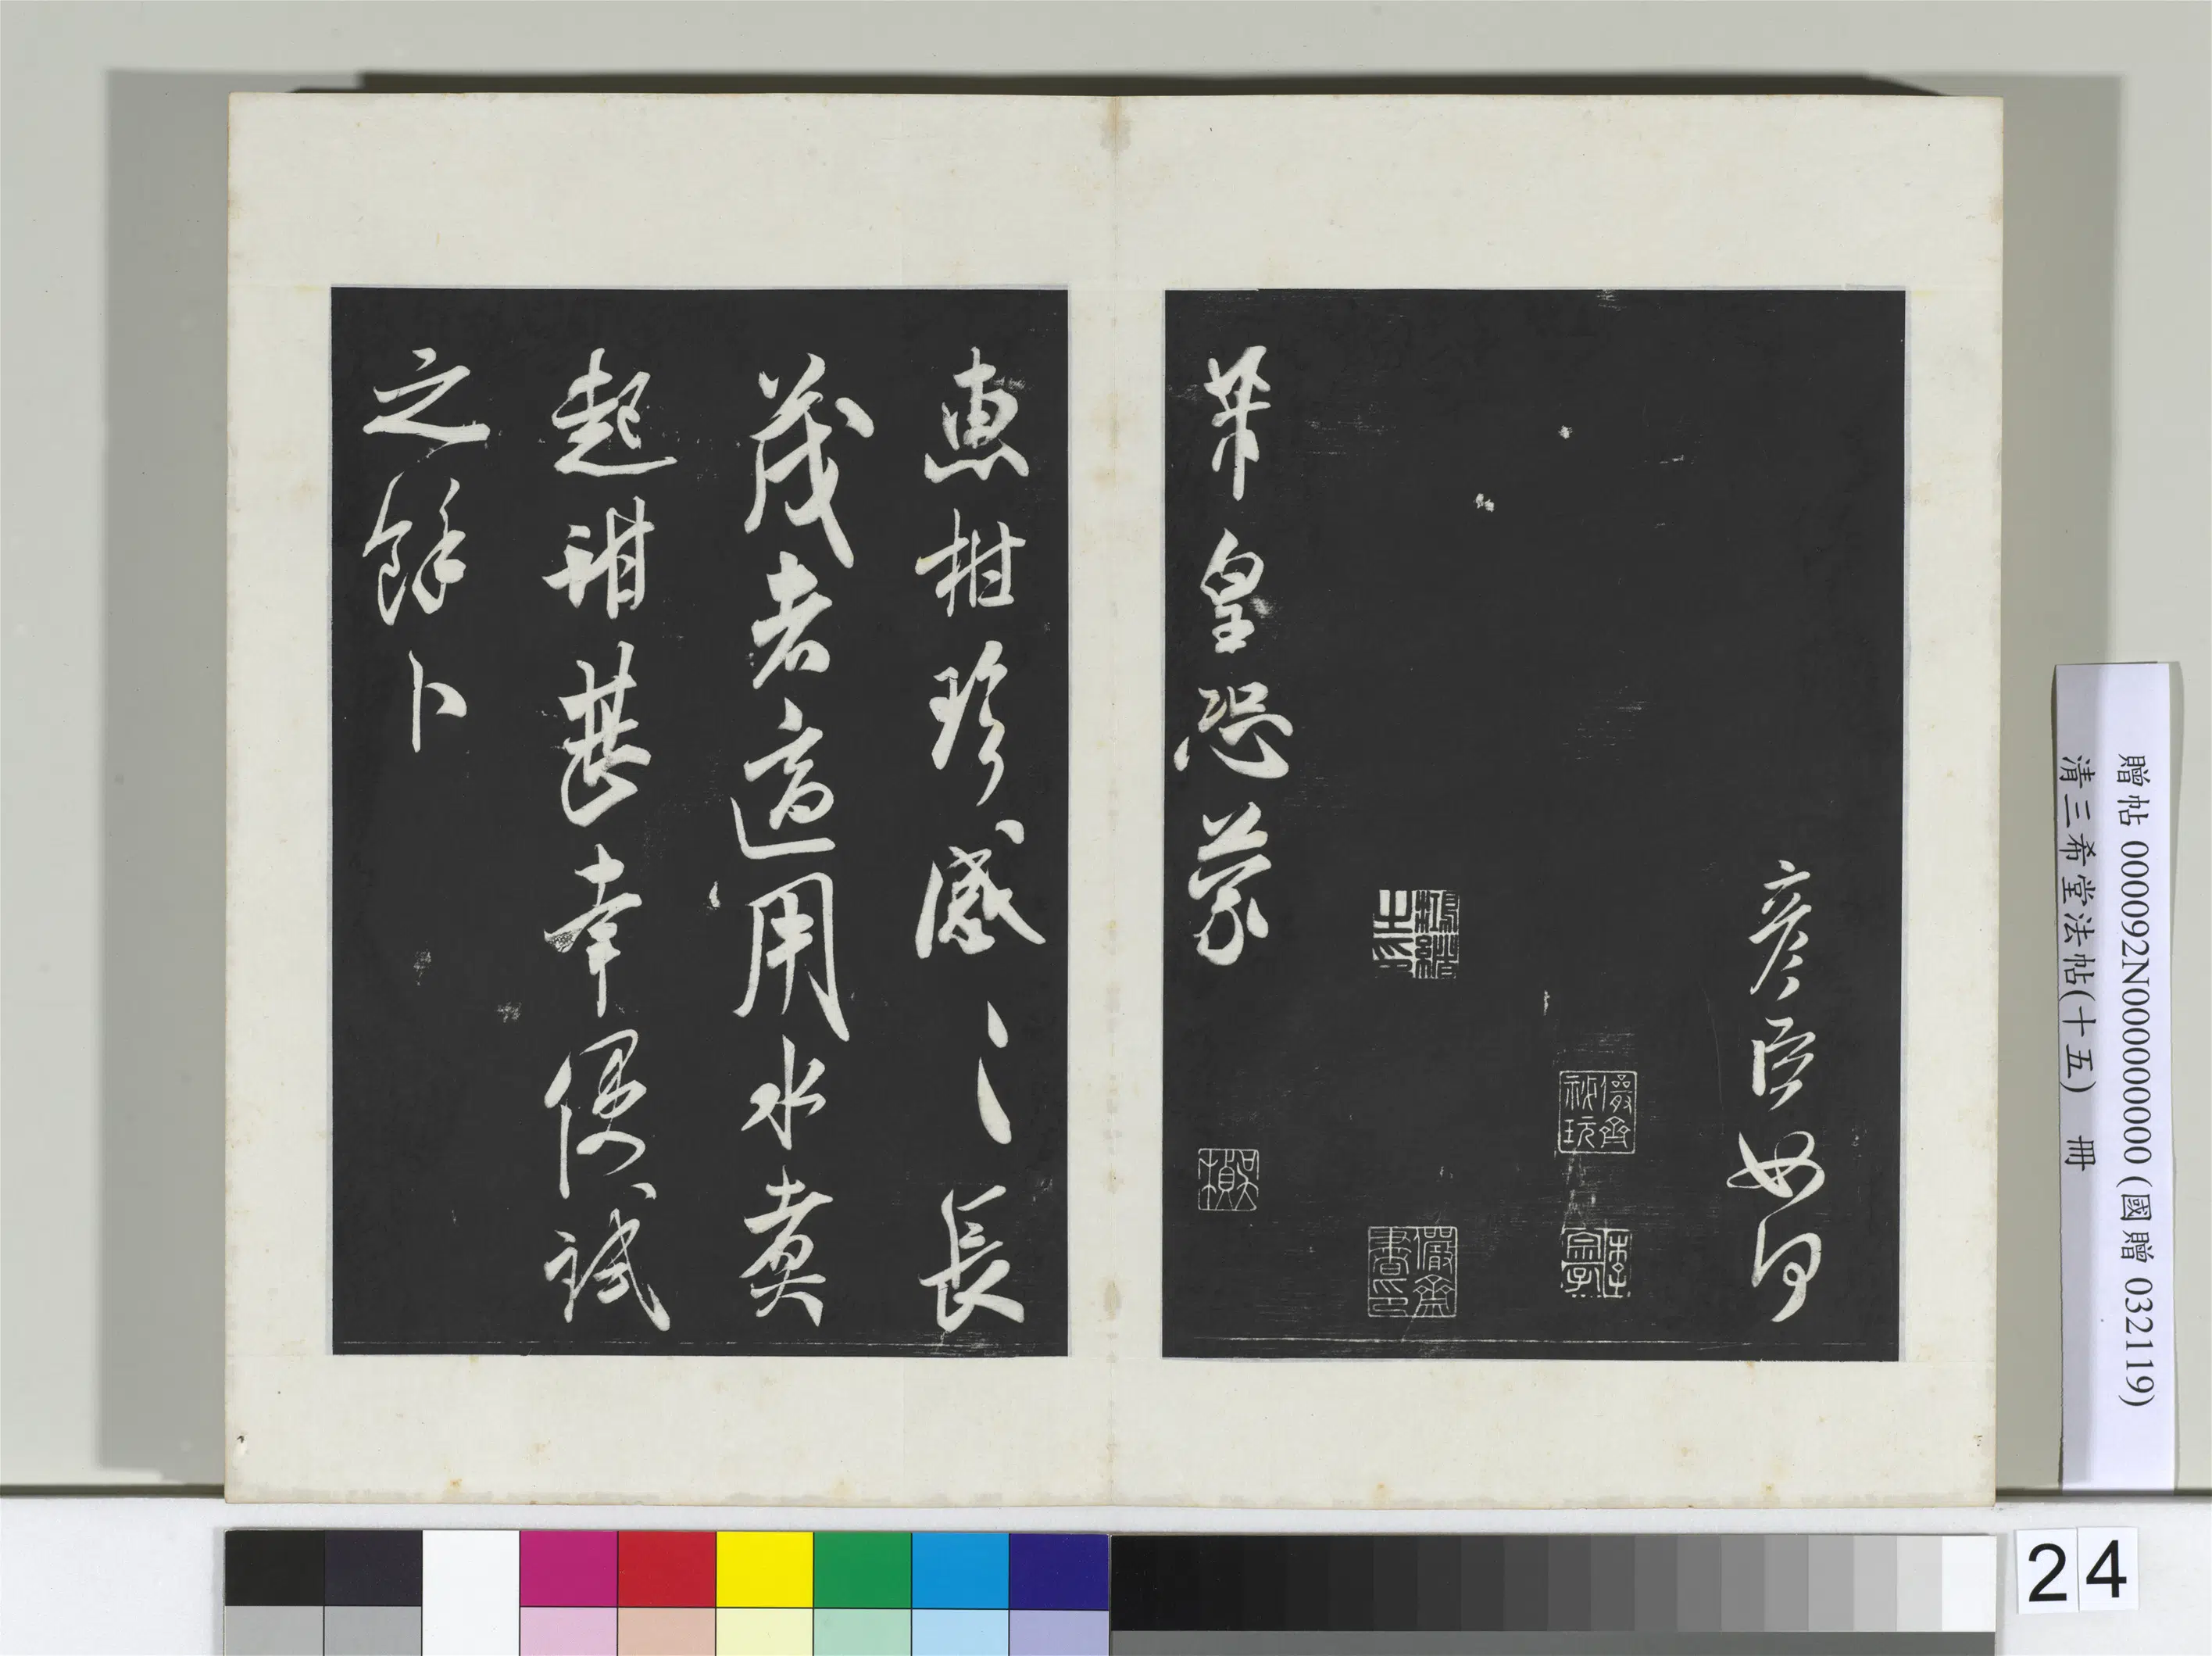 彥臣如何
芾皇恐蒙
惠柑珍感〻長
茂者適用水煮
起甜甚幸便試
之餘卜
儼齋
秘玩
儼齋
書印
吳
楨
贈帖 000092N000000000 (國贈 032119)
清三希堂法帖(十五) 冊
24